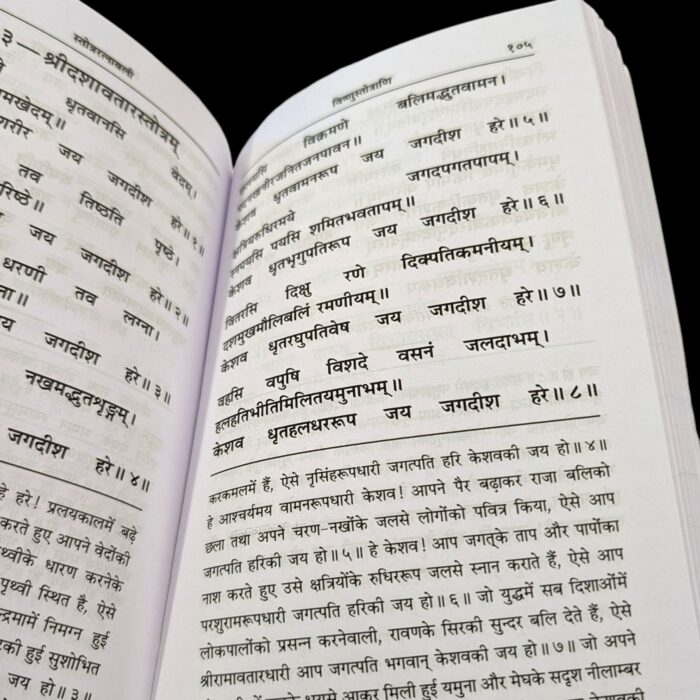 स्तोत्ररत्नावली
३—श्रीदशावतारस्तोत्रम्
धृतवानसि वेदम्।
खेदम्॥
शरीर जय जगदीश हरे॥१॥
तव तिष्ठति पृष्ठे।
रिष्ठे॥
जय जगदीश हरे॥२॥
धरणी तव लग्ना।
ग्ना॥
जय जगदीश हरे॥३॥
नखमद्भुतशृङ्गम्।
जगदीश हरे॥४॥
हे हरे! प्रलयकालमें बढ़े
करते हुए आपने वेदोंकी
पृथ्वीके धारण करनेके
पृथ्वी स्थित है, ऐसे
चन्द्रमामें निमग्न हुई
हुई सुशोभित
जय हो॥३॥
विष्णुस्तोत्राणि १०५
छलयसि विक्रमणे बलिमद्भुतवामन।
पदनखनीरजनितजनपावन॥
केशव धृतवामनरूप जय जगदीश हरे॥५॥
क्षत्रियरुधिरमये जगदपगतपापम्।
स्नपयसि पयसि शमितभवतापम्॥
केशव धृतभृगुपतिरूप जय जगदीश हरे॥६॥
वितरसि दिक्षु रणे दिक्पतिकमनीयम्।
दशमुखमौलिबलिं रमणीयम्॥
केशव धृतरघुपतिवेष जय जगदीश हरे॥७॥
वहसि वपुषि विशदे वसनं जलदाभम्।
हलहतिभीतिमिलितयमुनाभम्॥
केशव धृतहलधररूप जय जगदीश हरे॥८॥
करकमलमें हैं, ऐसे नृसिंहरूपधारी जगत्पति हरि केशवकी जय हो॥४॥
हे आश्चर्यमय वामनरूपधारी केशव! आपने पैर बढ़ाकर राजा बलिको
छला तथा अपने चरण-नखोंके जलसे लोगोंको पवित्र किया, ऐसे आप
जगत्पति हरिकी जय हो॥५॥ हे केशव! आप जगत्‌के ताप और पापोंका
नाश करते हुए उसे क्षत्रियोंके रुधिररूप जलसे स्नान कराते हैं, ऐसे आप
परशुरामरूपधारी जगत्पति हरिकी जय हो॥६॥ जो युद्धमें सब दिशाओंमें
लोकपालोंको प्रसन्न करनेवाली, रावणके सिरकी सुन्दर बलि देते हैं, ऐसे
श्रीरामावतारधारी आप जगत्पति भगवान् केशवकी जय हो॥७॥ जो अपने
भयसे आकर मिली हुई यमुना और मेघके सदृश नीलाम्बर